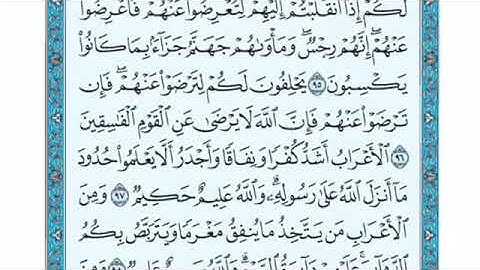 لَكُمْ إِذَا انقَلَبْتُمْ إِلَيْهِمْ لِتُعْرِضُوا عَنْهُمْ فَأَعْرِضُوا
عَنْهُمْ إِنَّهُمْ رِجْسٌ وَمَأْوَاهُمْ جَهَنَّمُ جَزَاءً بِمَا كَانُوا
يَكْسِبُونَ ٩٥ يَحْلِفُونَ لَكُمْ لِتَرْضَوْا عَنْهُمْ فَإِن
تَرْضَوْا عَنْهُمْ فَإِنَّ اللَّهَ لَا يَرْضَى عَنِ الْقَوْمِ الْفَاسِقِينَ
٩٦ الْأَعْرَابُ أَشَدُّ كُفْرًا وَنِفَاقًا وَأَجْدَرُ أَلَّا يَعْلَمُوا حُدُودَ
مَا أَنزَلَ اللَّهُ عَلَى رَسُولِهِ وَاللَّهُ عَلِيمٌ حَكِيمٌ ٩٧ وَمِنَ
الْأَعْرَابِ مَن يَتَّخِذُ مَا يُنفِقُ مَغْرَمًا وَيَتَرَبَّصُ بِكُمُ
الدَّوَائِرَ عَلَيْهِمْ دَائِرَةُ السَّوْءِ وَاللَّهُ سَمِيعٌ عَلِيمٌ ٩٨ وَمِنَ